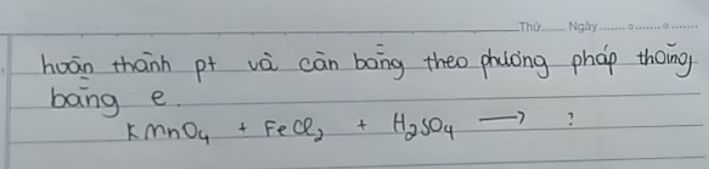 Thứ....... Ngày.......o.......o.......
hoàn thành pt và cân bằng theo phương pháp thăng
bằng e.
KMnO₄ + FeCl₂ + H₂SO₄ → ?